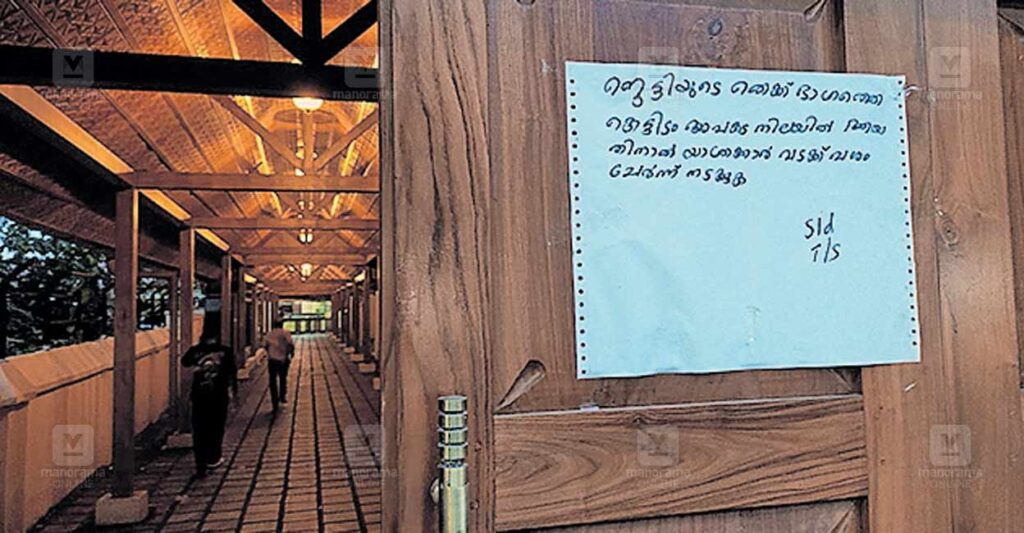 തെക്ക് ഭാഗത്തെ
കെട്ടിടം അപകട നിലയിൽ ആയ
തിനാൽ യാത്രക്കാർ വടക്ക് വശം
ചേർന്ന് നടക്കുക
S/d
T/S
manorama
manorama
manorama
manorama
manorama
manorama